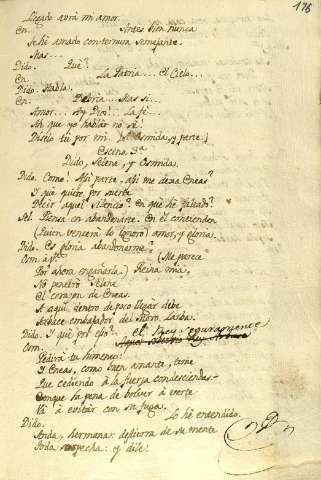 176
Llegado avrá mi amor.
En. Antes bien nunca
Te he amado con ternura semejante.
Mas...
Dido. Qué?
En. La Patria... el Cielo...
Dido. Habla.
En. Debria... Mas si...
Amor... Ay Dios! La fé...
Ah que yo hablar no sé!
Diselo tú por mi. (á Osmida, y parte.)
Escena 3ª
Dido, Selene, y Osmida.
Dido. Como! Asi parte: asi me dexa Eneas?
Y qué quiere por suerte
Decir aquel silencio? En qué he faltado?
Sel. Piensa en abandonarte. En él contienden
(Quien vencerá lo ignoro) amor, y gloria.
Dido. Es gloria abandonarme?
Osm. á pte. (Me parece
Por ahora engañarla.) Reina mia,
No penetró Selene
El corazon de Eneas.
A aqui dentro de poco llegar debe
embajador del Moro, Iarba.
Dido. Y qué por eso? el Rey seguramente
Osm.
Pedirá tu himeneo:
Y Eneas, como buen amante, teme
Que cediendo á la fuerza condesciendas.
Conque la pena de bolver á verte
Vá á evitar con su fuga.
Dido. Lo he entendido.
Anda, hermana: destierra de su mente
Toda sospecha: y dile: